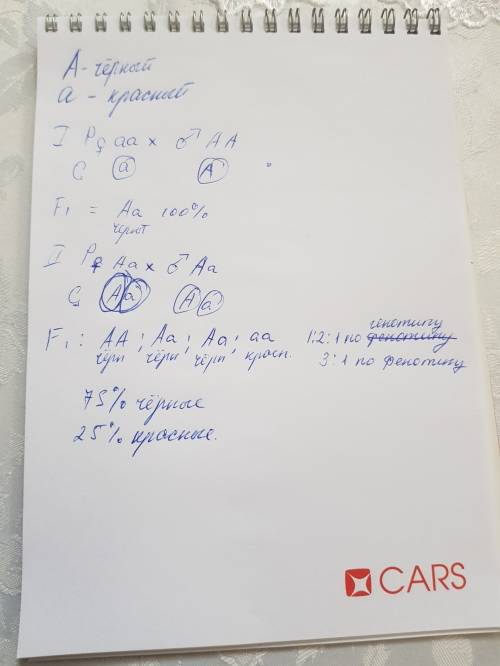 A - чёрный
a - красный
I P ♀ aa × ♂ AA
G a A
F₁ = Aa 100%
черн
II P ♀ Aa × ♂ Aa
G A a A a
F₁ : AA ; Aa ; Aa ; aa 1:2:1 по фенотипу генотипу
чёрн чёрн чёрн красн. 3:1 по фенотипу
75% чёрные
25% красные.
CARS